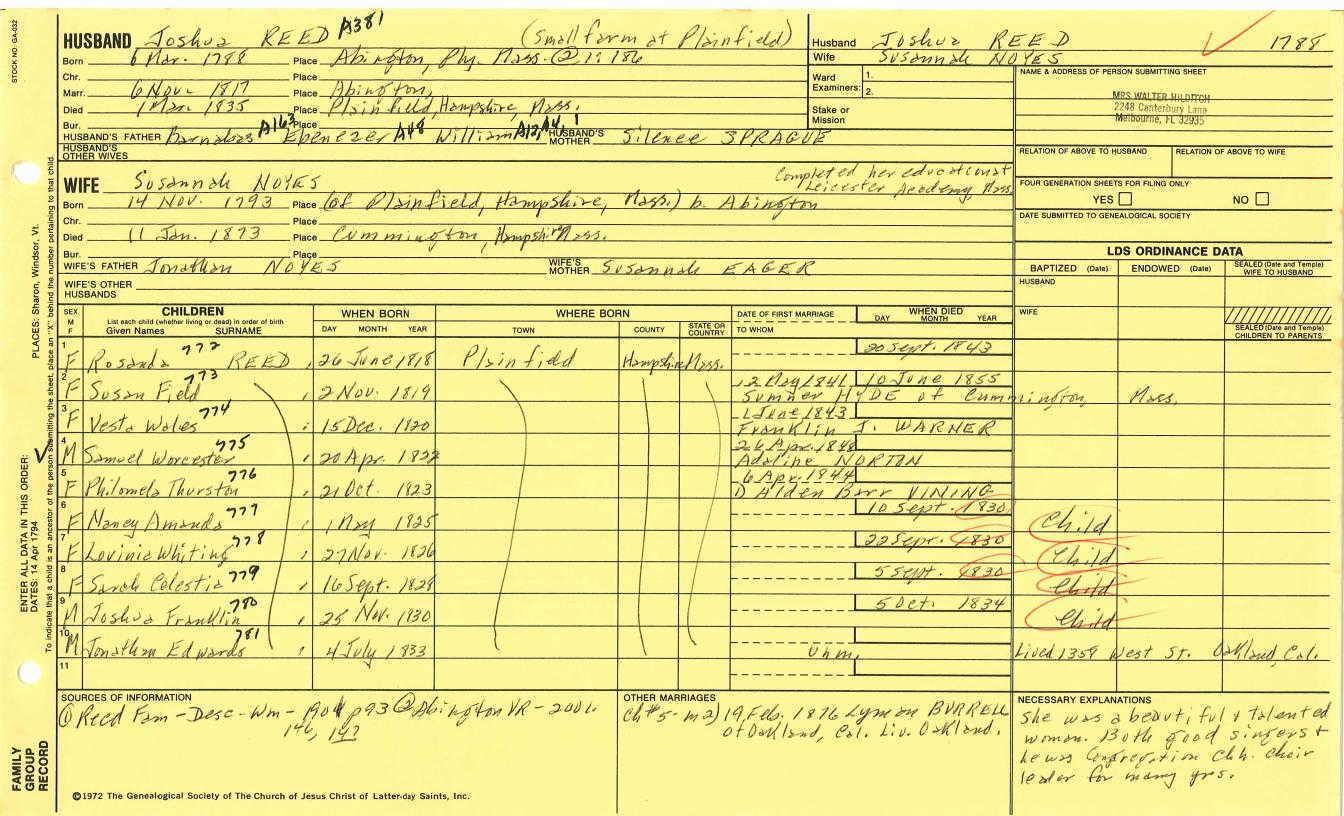 STOCK NO. GA-032
HUSBAND Joshua REED A381 (Small farm at Plainfield)
Born 6 Mar. 1788 Place Abington, Ply. Mass. @ 1: 186
Chr. Place
Marr. 6 Nov. 1817 Place Abington,
Died 1 Mar. 1835 Place Plainfield, Hampshire, Mass.
Bur. Place
HUSBAND'S FATHER Barnabas A163 Ebenezer A48 William A12, A4, 1 HUSBAND'S MOTHER Silence SPRAGUE
HUSBAND'S OTHER WIVES
Husband Joshua REED 1788
Wife Susannah NOYES
Ward Examiners: 1.
2.
Stake or Mission
NAME & ADDRESS OF PERSON SUBMITTING SHEET
MRS WALTER HILDITCH
2248 Canterbury Lane
Melbourne, FL 32935
RELATION OF ABOVE TO HUSBAND RELATION OF ABOVE TO WIFE
FOUR GENERATION SHEETS FOR FILING ONLY
YES NO
DATE SUBMITTED TO GENEALOGICAL SOCIETY
WIFE Susannah NOYES Completed her education at
Leicester Academy, Mass
Born 14 Nov. 1793 Place (of Plainfield, Hampshire, Mass.) b. Abington
Chr. Place
Died 11 Jan. 1873 Place Cummington, Hampshire Mass.
Bur. Place
WIFE'S FATHER Jonathan NOYES WIFE'S MOTHER Susannah EAGER
WIFE'S OTHER HUSBANDS
LDS ORDINANCE DATA
BAPTIZED (Date) ENDOWED (Date) SEALED (Date and Temple) WIFE TO HUSBAND
HUSBAND
WIFE
SEALED (Date and Temple) CHILDREN TO PARENTS
SEX M F CHILDREN WHEN BORN WHERE BORN DATE OF FIRST MARRIAGE WHEN DIED
List each child (whether living or dead) in order of birth
Given Names SURNAME DAY MONTH YEAR TOWN COUNTY STATE OR COUNTRY TO WHOM DAY MONTH YEAR
1 F Rosanda 772 REED 26 June 1818 Plainfield Hampshire Mass. 20 Sept. 1843
2 F Susan Field 773 2 Nov. 1819 12 May 1841 10 June 1855
Sumner HYDE of Cummington, Mass.
3 F Vesta Wales 774 15 Dec. 1820 1 June 1843
Franklin J. WARNER
4 M Samuel Worcester 775 20 Apr. 1822 26 Apr. 1848
Adaline NORTON
5 F Philomela Thurston 776 21 Oct. 1823 6 Apr. 1844
D Alden Barr VINING
6 F Nancy Amanda 777 1 May 1825 10 Sept. 1830 Child
7 F Lovinia Whiting 778 27 Nov. 1826 22 Sept. 1830 Child
8 F Sarah Celestia 779 16 Sept. 1828 5 Sept. 1830 Child
9 M Joshua Franklin 780 25 Nov. 1830 5 Oct. 1834 Child
10 M Jonathan Edwards 781 4 July 1833 Unm. Lived 1359 West St. Oakland, Cal.
11
SOURCES OF INFORMATION
① Reed Fam-Desc-Wm-1901 p93 @ Abington VR-200 i.
146, 147
OTHER MARRIAGES
Ch #5- m 2) 19, Feb. 1876 Lyman BURRELL
of Oakland, Cal. Liv. Oakland.
NECESSARY EXPLANATIONS
She was a beautiful & talented
woman. Both good singers &
he was Congregation Chh. choir
leader for many yrs.
©1972 The Genealogical Society of The Church of Jesus Christ of Latter-day Saints, Inc.
FAMILY GROUP RECORD
ENTER ALL DATA IN THIS ORDER:
DATES: 14 Apr 1794
PLACES: Sharon, Windsor, Vt.
To indicate that a child is an ancestor of the person submitting the sheet, place an "X" behind the number pertaining to that child.